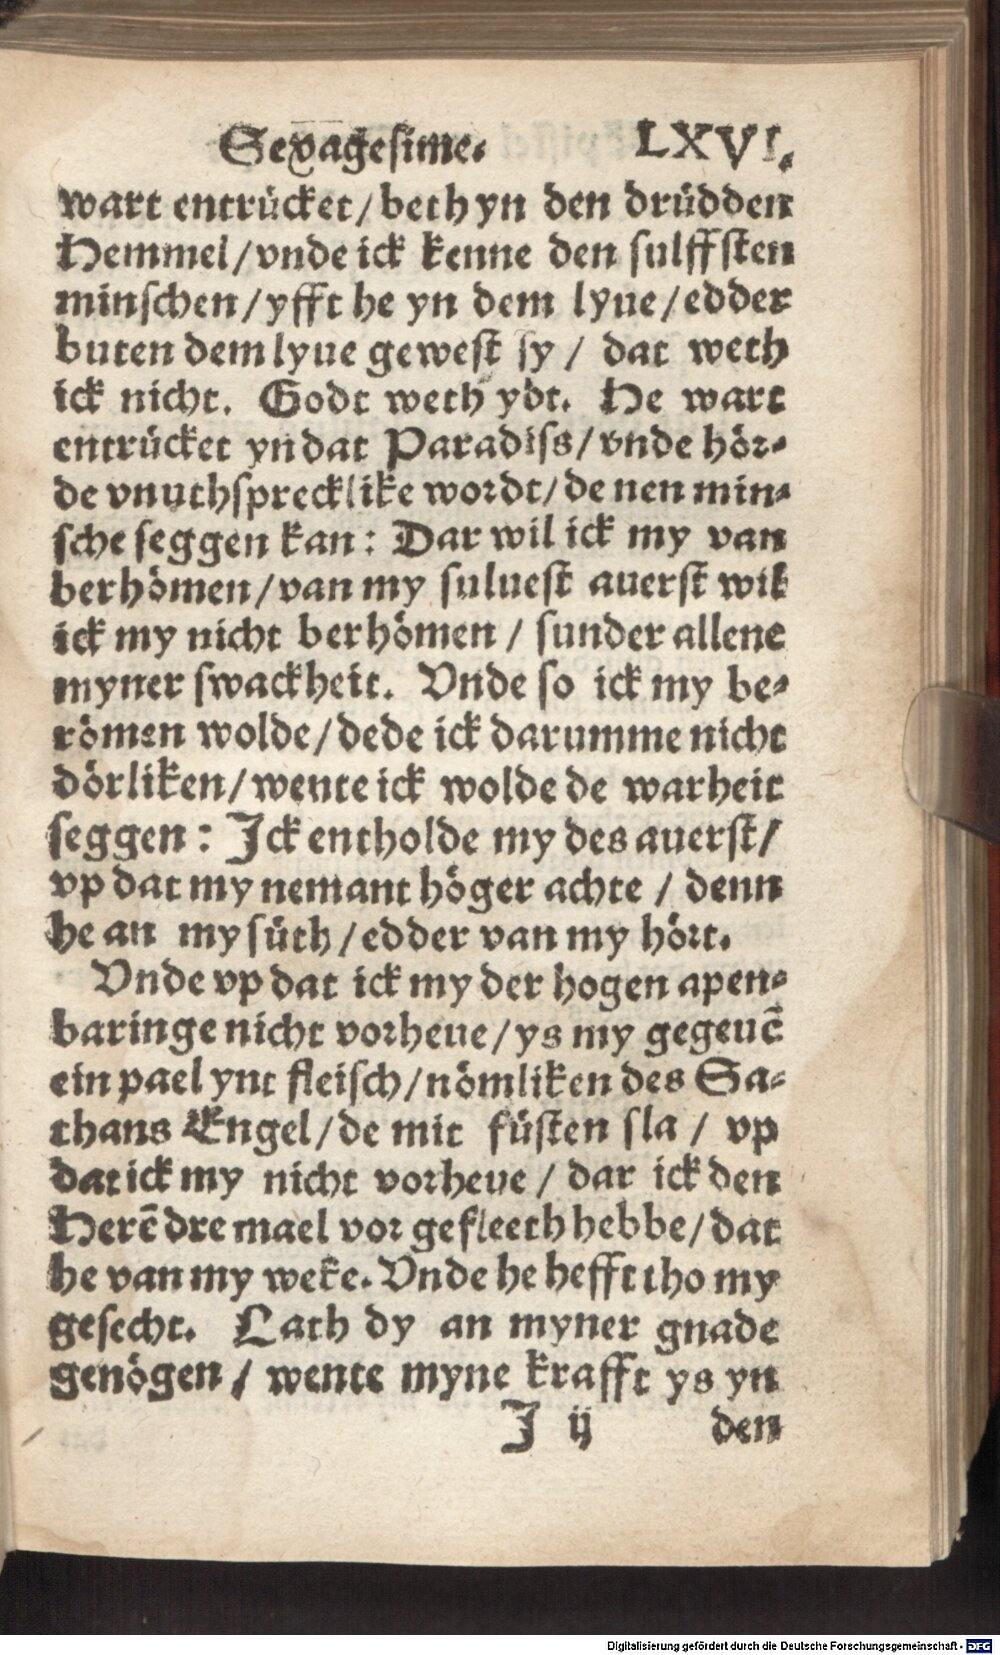 Sexagesime. LXVI.
wart entrücket/beth yn den drüdden
Hemmel/vnde ick kenne den sulffsten
minschen/yfft he yn dem lyue/edder
buten dem lyue gewest sy/ dat weth
ick nicht. Godt weth ydt. He wart
entrücket yn dat Paradiss/vnde hör-
de vnuthsprecklike wordt/de nen min-
sche seggen kan: Dar wil ick my van
berhömen/van my suluest auerst wil
ick my nicht berhömen/ sunder allene
myner swackheit. Vnde so ick my be-
römen wolde/dede ick darumme nicht
dörliken/wente ick wolde de warheit
seggen: Ick entholde my des auerst/
vp dat my nemant höger achte/ denn
he an my süth/edder van my hört.
Vnde vp dat ick my der hogen apen-
baringe nicht vorheue/ys my gegeuē
ein pael ynt fleisch/nömliken des Sa-
thans Engel/de mit füsten sla/ vp
dat ick my nicht vorheue/ dar ick den
Herē dre mael vor gefleeth hebbe/dat
he van my weke. Vnde he hefft tho my
gesecht. Lath dy an myner gnade
genögen/ wente myne krafft ys yn
J ij den
Digitalisierung gefördert durch die Deutsche Forschungsgemeinschaft - DFG